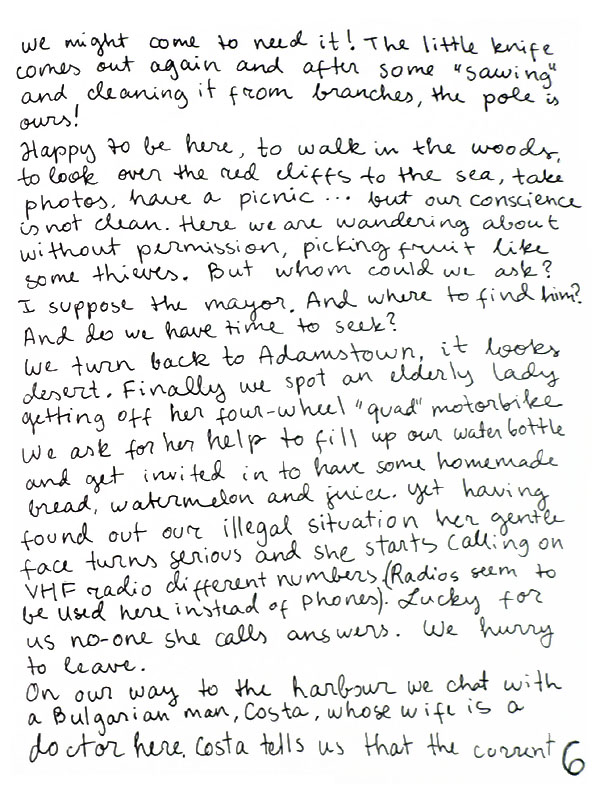 we might come to need it! The little knife
comes out again and after some "sawing"
and cleaning it from branches, the pole is
ours!
Happy to be here, to walk in the woods,
to look over the red cliffs to the sea, take
photos, have a picnic ... but our conscience
is not clean. Here we are wandering about
without permission, picking fruit like
some thieves. But whom could we ask?
I suppose the mayor. And where to find him?
And do we have time to seek?
We turn back to Adamstown, it looks
desert. Finally we spot an elderly lady
getting off her four-wheel "quad" motorbike
We ask for her help to fill up our water bottle
and get invited in to have some homemade
bread, watermelon and juice. Yet having
found out our illegal situation her gentle
face turns serious and she starts calling on
VHF radio different numbers (Radios seem to
be used here instead of phones). Lucky for
us no-one she calls answers. We hurry
to leave.
On our way to the harbour we chat with
a Bulgarian man, Costa, whose wife is a
doctor here. Costa tells us that the current
6